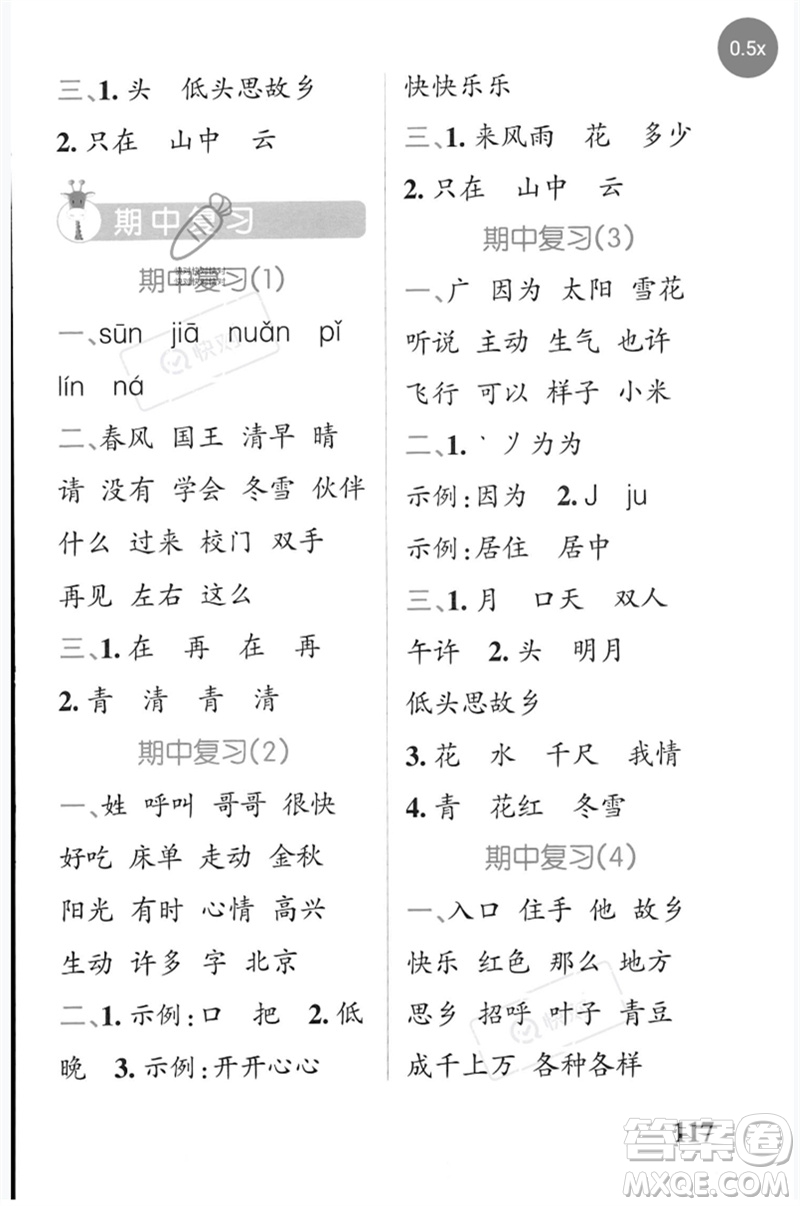 0.5x
三、1. 头 低头思故乡
2. 只在 山中 云
期中复习
期中复习(1)
一、sūn jiā nuǎn pǐ
lín ná
二、春风 国王 清早 晴
请 没有 学会 冬雪 伙伴
什么 过来 校门 双手
再见 左右 这么
三、1. 在 再 在 再
2. 青 清 青 清
期中复习(2)
一、姓 呼叫 哥哥 很快
好吃 床单 走动 金秋
阳光 有时 心情 高兴
生动 许多 字 北京
二、1. 示例:口 把 2. 低
晚 3. 示例:开开心心
快快乐乐
三、1. 来风雨 花 多少
2. 只在 山中 云
期中复习(3)
一、广 因为 太阳 雪花
听说 主动 生气 也许
飞行 可以 样子 小米
二、1. 丶 丿 为为
示例:因为 2. J ju
示例:居住 居中
三、1. 月 口天 双人
午许 2. 头 明月
低头思故乡
3. 花 水 千尺 我情
4. 青 花红 冬雪
期中复习(4)
一、入口 住手 他 故乡
快乐 红色 那么 地方
思乡 招呼 叶子 青豆
成千上万 各种各样
117
答案圈
MXQE.COM
快对